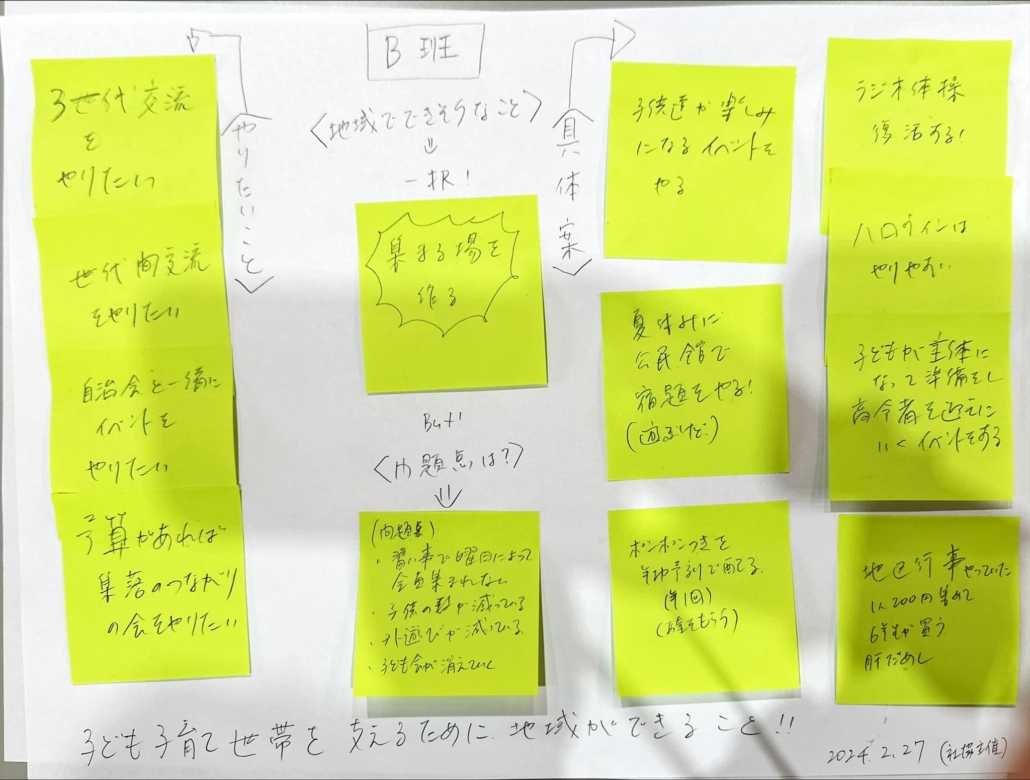 B 班
やりたいこと
3世代交流
を
やりたい
世代間交流
をやりたい
自治会と一緒に
イベントを
やりたい
予算があれば
集落のつながり
の会をやりたい
〈地域でできそうなこと〉
一択!
集まる場を
作る
But!
〈問題点は?〉
(問題点)
・習い事で曜日によって
全員集まれない
・子供の数が減っている
・外遊びが減っている
・子ども会が消えていく
具体案
子供達が楽しみ
になるイベントを
やる
夏休みに
公民館で
宿題をやる!
(遊ぶけど)
ボンボンつきを
で配る
(年1回)
(お金をもらう)
ラジオ体操
復活する!
ハロウィンは
やりやすい
子どもが主体に
なって準備をし
高令者を迎えに
いくイベントをする
地区行事やっていた
1人200円集めて
6年生が買う
肝だめし
子ども子育て世帯を支えるために地域ができること!!
2024.2.27 (社協主催)